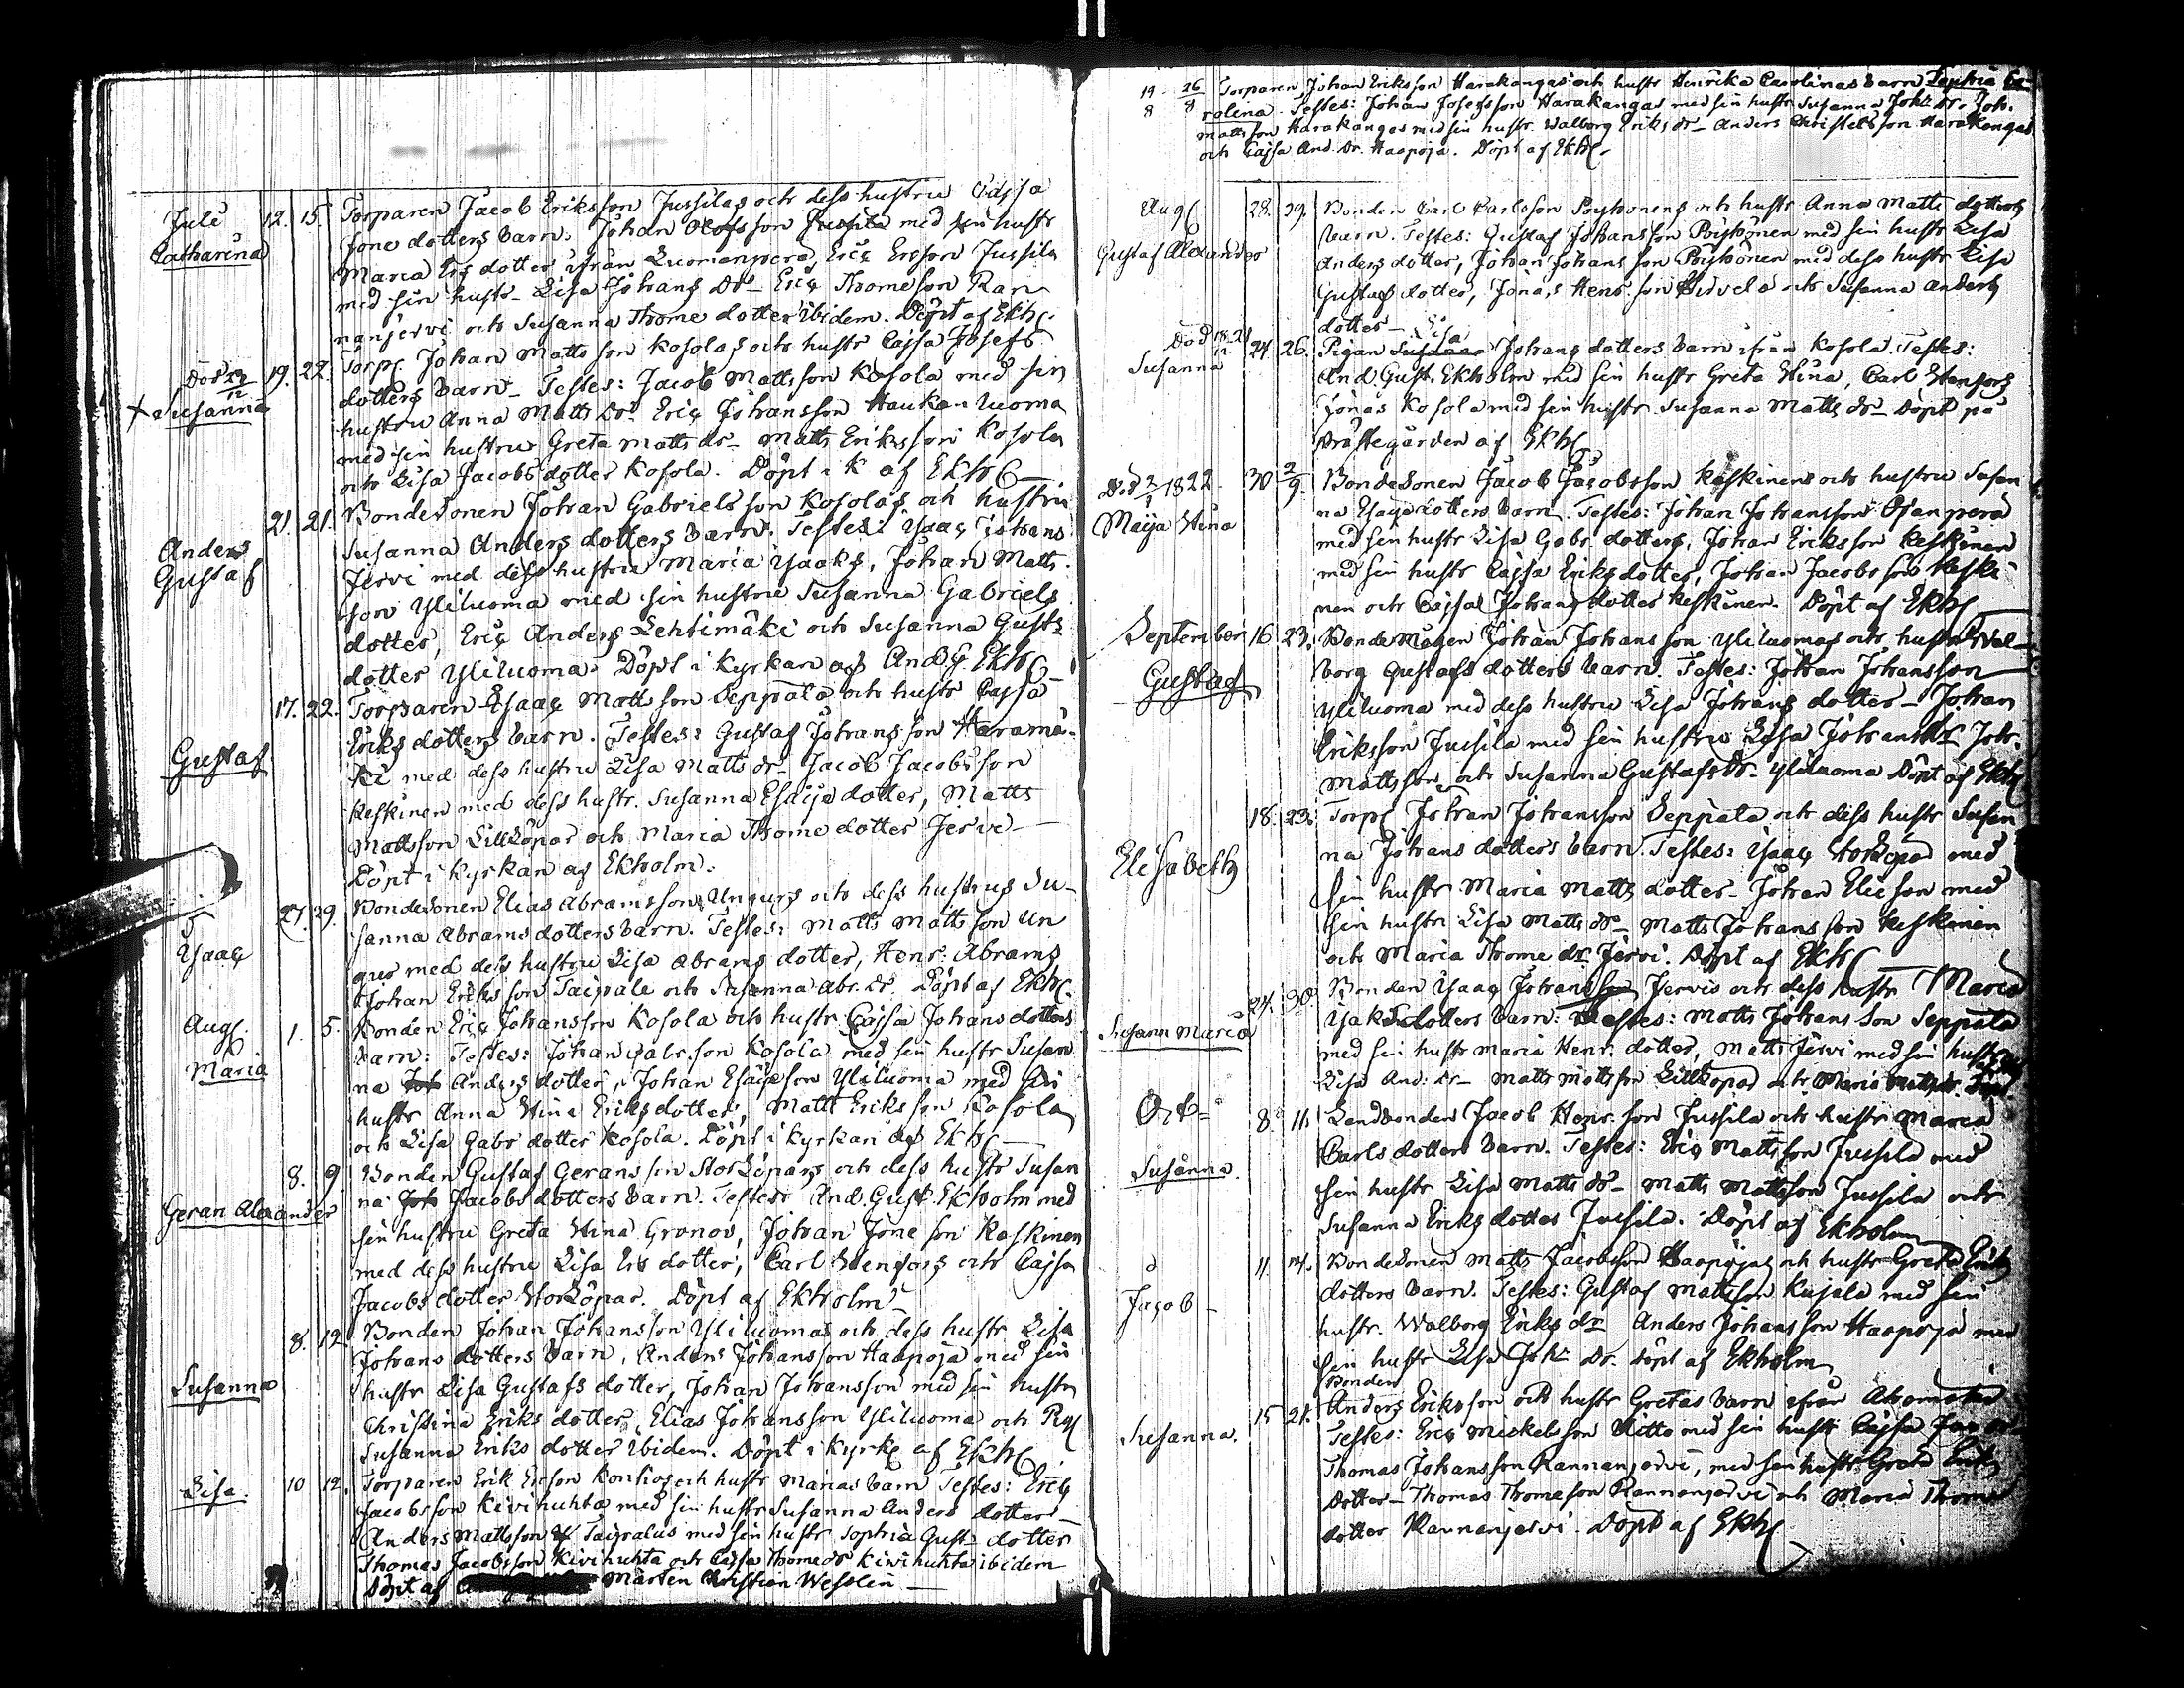 Jule 12. 15. Torparen Jacob Eriksson Jussilas och dess hustru Cajsa
Catharina Jone dotters barn. Johan Olofsson Jussila med sin hustr
Maria Ers dotter ifrån Luomanperä, Eric Ersson Jussila
med sin hustr. Lisa Johans Dr. Eric Thomeson Ran
nanjervi och Susanna Thome dotter ibidem. Döpt af Ekh.
Död 23/12 19. 22. Torp. Johan Matts son Kosolas och hustr Cajsa Josefs
+ Susanna dotters barn. Testes: Jacob Mattsson Kosola med sin
hustru Anna Matts Dr. Eric Johansson Haukanluoma
med sin hustru Greta Matts dr. Matts Eriksson Kosola
och Lisa Jacobs dotter Kosola. Döpt i K af Ekh
21. 21. Bondesonen Johan Gabrielsson Kosolas och hustru
Anders Susanna Anders dotters barn. Testes: Ysaac Johans
Gustaf Jervi med dess hustru Maria Ysaaks, Johan Matts
son Yliluoma med sin hustru Susanna Gabriels
dotter, Eric Anders Lehtimäki och Susanna Gusts
dotter Yliluoma. Döpt i Kyrkan af And. G. Ekh
17. 22. Torparen Esaac Matts son Seppälä och hustr Cajsa
Eriks dotters barn. Testes: Gustaf Johansson Haramä
Gustaf ki med dess hustru Lisa Matts dr. Jacob Jacobsson
Keskinen med dess hustr. Susanna Esaije dotter, Matts
Mattsson Lillköpar och Maria Thome dotter Jervi
Döpt i Kyrkan af Ekholm.
27. 29. Bondesonen Elias Abramsson Ungurs och dess hustrus Su
sanna Abrams dotters barn. Testes: Matts Matts son Un
Ysaac gur med dess hustru Lisa Abrams dotter, Henr. Abrams
Johan Eriks son Taipale och Susanna Abr. dr. Döpt af Ekh.
Aug. 1. 5. Bonden Eric Johansson Kosola och hustr Cajsa Johans dotters
Maria barn: Testes: Johan Gabr. son Kosola med sin hustr Susan
na Joh Anders dotter, Johan Esaijeson Yliluoma med sin
hustr Anna Stina Eriks dotter, Matts Eriks son Kosola
och Lisa Gabr dotter Kosola. Döpt i Kyrkan af Ekh
8. 9. Bonden Gustaf Gerans son Storköpars och dess hustr Susan
Geran Alexander na Joh Jacobs dotters barn. Testes: And. Gust. Ekholm med
sin hustru Greta Stina Gronov, Johan Jone son Keskinen
med dess hustru Lisa Ers dotter, Carl Stenfors och Cajsa
Jacobs dotter Storköpar. Döpt af Ekholm
8. 12. Bonden Johan Johansson Yliluomas och dess hustr Lisa
Johans dotters barn, Anders Johansson Haapoja med sin
Susanna hustr Lisa Gustafs dotter, Johan Johansson med sin hustr
Christina Eriks dotter, Elias Johansson Yliluoma och Pig
Susanna Eriks dotter ibidem. Döpt i Kyrk af Ekh
Lisa. 10 12. Torparen Erik Ersson Kontios och hustr Marias barn Testes: Eric
Jacobsson Kivihuhta med sin hustr Susanna Anders dotter
Anders Mattsson Taipalus med sin hustr Sophia Gust. dotter
Thomas Jacobsson Kivihuhta och Cajsa Thome dr Kivihuhta ibidem
Döpt af Mårten Christian Wesslin
19/8 26/8 Torparen Johan Eriksson Harakangas och hustr Henrika Carolinas barn Sophia Ca
rolina. Testes: Johan Josefsson Harakangas med sin hustr Susanna Joh. dr. Joh.
Mattsson Harakangas med sin hustr. Walborg Eriks dr. Anders Christersson Harakangas
och Cajsa And. Dr. Haapoja. Döpt af Ekh.
Aug 28. 29. Bonden Carl Carlsson Pöyhönens och hustr Anna Matts dotters
barn. Testes: Gustaf Johansson Pöyhönen med sin hustr Lisa
Gustaf Alexander Anders dotter, Johan Johans son Pöyhönen med dess hustr Lisa
Gustafs dotter, Jonas Henr. son Hirvelä och Susanna Anders
dotter
Lisa
24. 26. Pigan Susanna Johans dotters barn ifrån Kosola. Testes:
Susanna And. Gust. Ekholm med sin hustr Greta Stina, Carl Stenfors
Jonas Kosola med sin hustr Susanna Matts dr. Döpt på
Prästegården af Ekh
Död 2/1 1822. 30 2/9. Bondesonen Jacob Jacobsson Keskinens och hustru Susan
Maija Stina na Esaije dotters barn. Testes: Johan Johansson Ojanperä
med sin hustr Lisa Gabr dotter, Johan Eriksson Keskinen
med sin hustr Cajsa Eriks dotter, Johan Jacobsson Keski
nen och Cajsa Johans dotter Keskinen. Döpt af Ekh
September 16 23. Bondemågen Johan Johans son Yliluomas och hustr Wal
Gustaf borg Gustafs dotters barn. Testes: Johan Johansson
Yliluoma med dess hustru Lisa Johans dotter. Johan
Eriksson Jussila med sin hustru Lisa Johans dr Joh.
Mattsson och Susanna Gustafs Dr. Yliluoma Döpt af Ekh
18. 23. Torp Johan Johansson Seppälä och dess hustr Susan
na Johans dotters barn. Testes: Ysaac Storköpar med
Elisabeth sin hustr Maria Matts dotter. Johan Elieson med
sin hustr Lisa Matts dr. Matts Johans son Keskinen
och Maria Thome dr Jervi. Döpt af Ekh
24. 30. Bonden Ysaac Johansson Jervis och dess hustr Maria
Ysaks dotters barn: Testes: Matts Johans son Seppälä
Susann Maria med sin hustr Maria Henr. dotter, Matts Jervi med sin hustr
Lisa And: dr. Matts Mattsson Lillköpar och Maria Matts dr.
Oct. 8. 11. Landbonden Jacob Henr. son Jussila och hustr Maria
Carls dotters barn. Testes: Eric Mattsson Jussila med
Susanna. sin hustr Lisa Matts dr. Matts Mattsson Jussila och
Susanna Eriks dotter Jussila. Döpt af Ekholm
11. 14. Bondesonen Matts Jacobsson Haapojas och hustr Greta Eriks
dotters barn. Testes: Gustaf Mattsson Kujala med sin
Jacob hustr. Walborg Eriks dr Anders Johans son Haapoja med
sin hustr Lisa Joh Dr. Döpt af Ekholm
Bonden
15 21. Anders Eriksson och hustr Gretas barn ifrån
Susanna. Testes: Eric Mickelsson Uitto med sin hustr Cajsa
Thomas Johansson Rannanjärvi, med sin hustr Greta Eriks
dotter. Thomas Thomeson Rannanjärvi och Maria Thome
dotter Rannanjervi. Döpt af Ekh